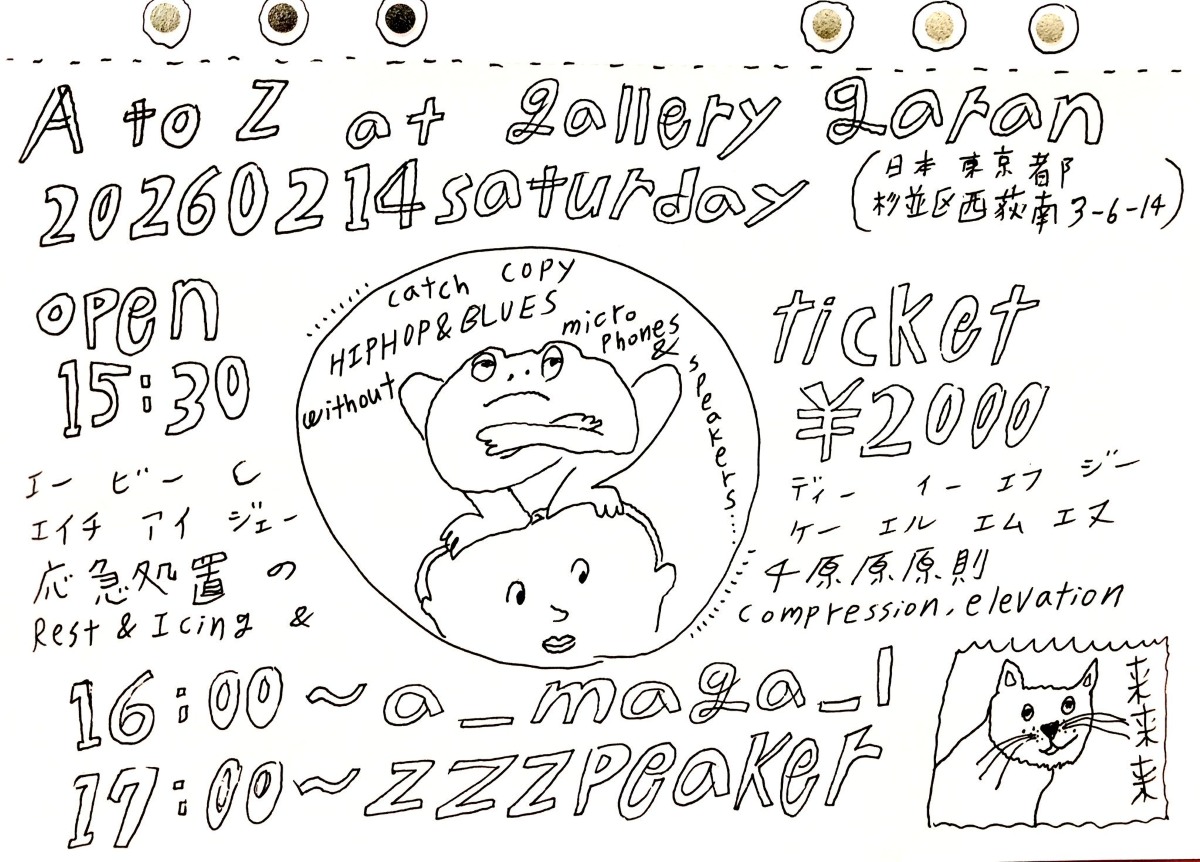 A to Z at gallery garan
20260214 saturday
(日本 東京都
杉並区西荻南3-6-14)
open
15:30
catch copy
HIPHOP & BLUES
without
micro
phones
&
speakers....
ticket
¥2000
エー ビー C
エイチ アイ ジェー
応急処置 の
Rest & Icing &
ディー イー エフ ジー
ケー エル エム エヌ
4原原原則
compression, elevation
16:00~a_maga_l
17:00~zzzpeaker
来来来